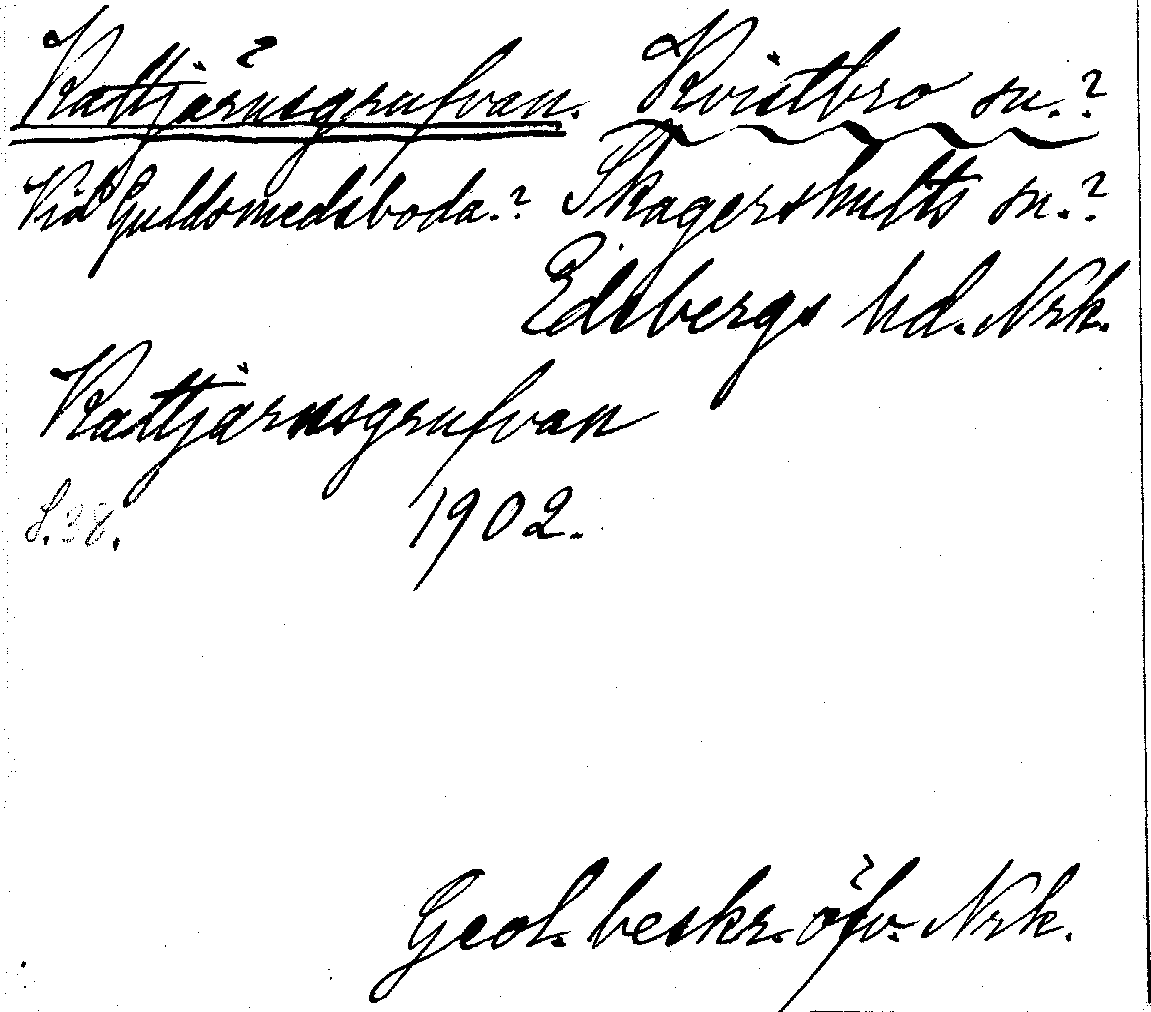 Kattjärnsgrufvan. Kvistbro sn.?
Vid Guldsmedsboda.? Skagershults sn.?
Edsbergs hd. Nrk.
Kattjärnsgrufvan
S. 38. 1902.
Geol. beskr. öfv. Nrk.